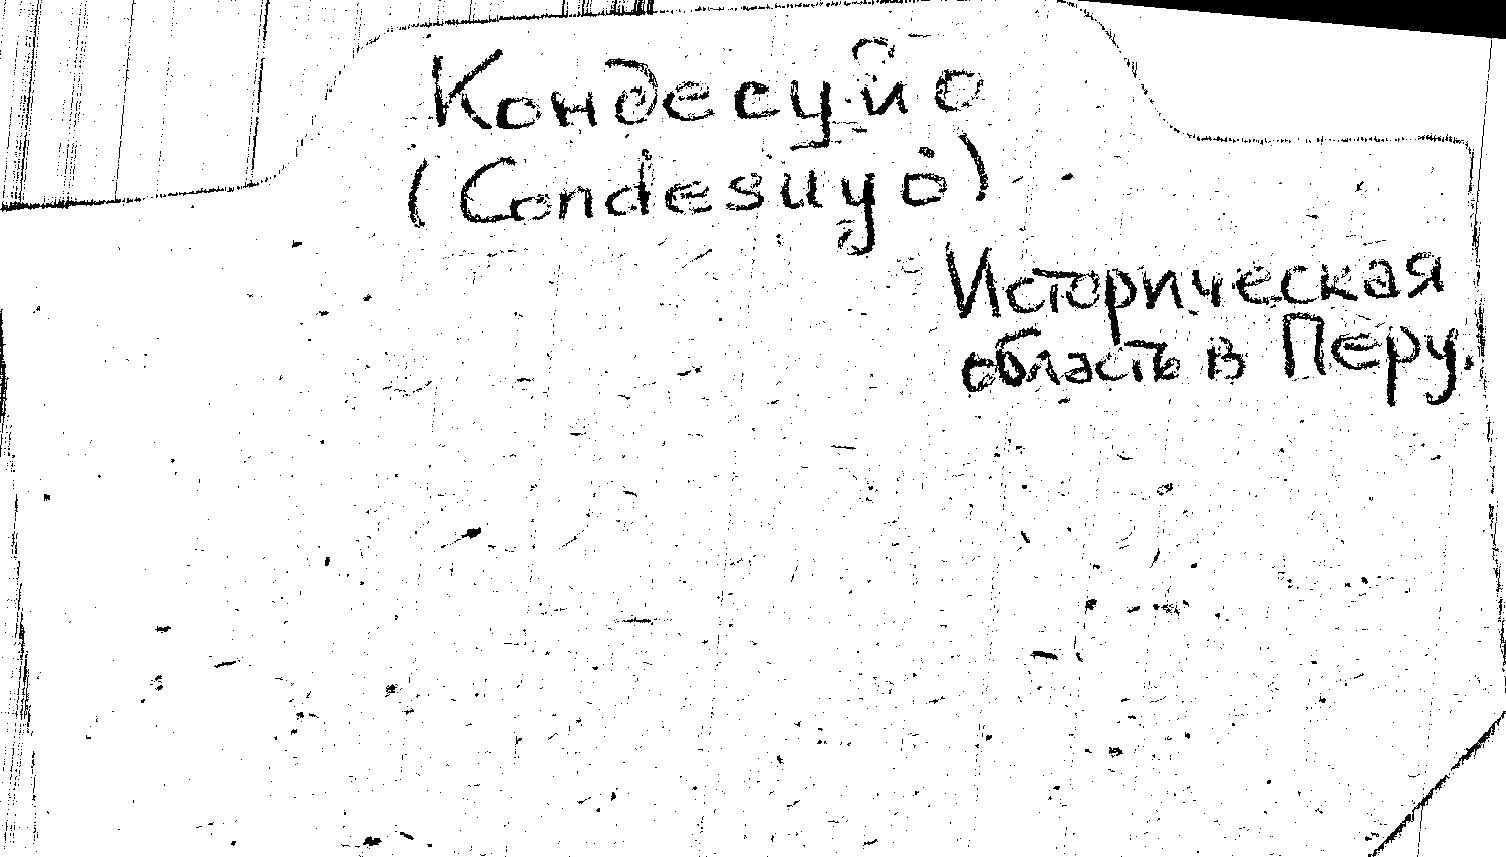 Кондесуйо
(Condesuyo)
Историческая
область в Перу.